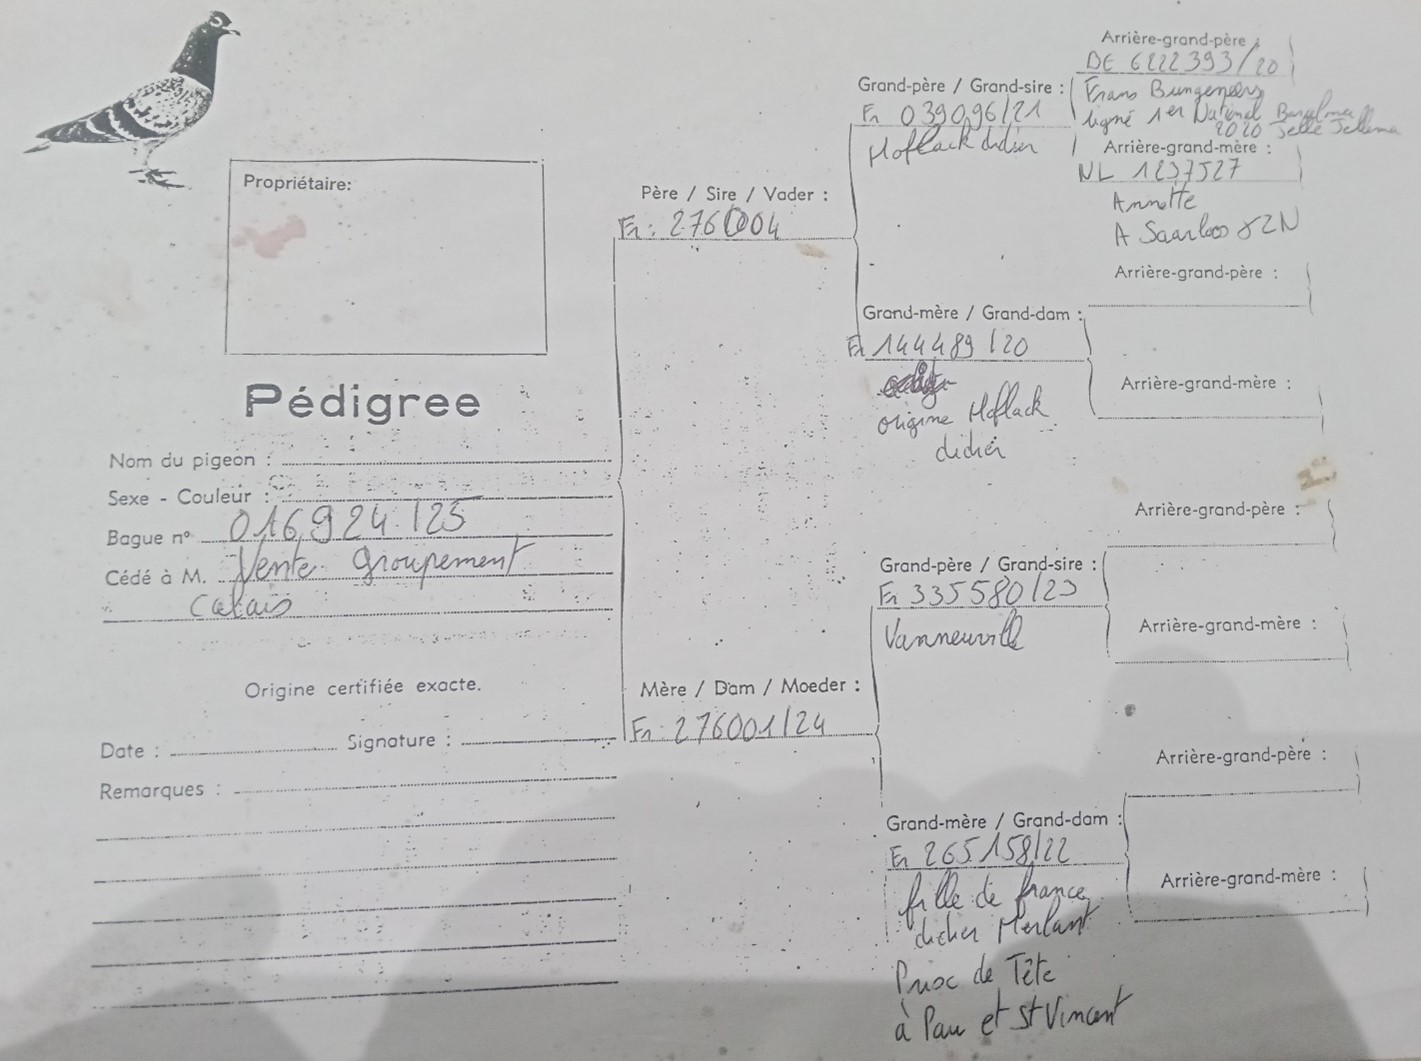 Propriétaire:
Pédigree
Nom du pigeon :
Sexe - Couleur :
Bague n° 016924.125
Cédé à M. Vente groupement
calais
Origine certifiée exacte.
Date : Signature :
Remarques :
Père / Sire / Vader :
Fr: 276004
Mère / Dam / Moeder :
Fr: 276001/24
Grand-père / Grand-sire :
Fr 039096/21
Hoflack didier
Grand-mère / Grand-dam :
Fr 144489/20
origine Hoflack
didier
Grand-père / Grand-sire :
Fr 335580/23
Vanneuville
Grand-mère / Grand-dam :
Fr 265158/22
fille de france
didier Merlant
Prix de Tête
à Pau et St Vincent
Arrière-grand-père :
BE 6222393/20
Frans Bungeneers
ligné 1er National
2020 Jelle Jellema
Arrière-grand-mère :
NL 1237527
Annette
A Saarloos
Arrière-grand-père :
Arrière-grand-mère :
Arrière-grand-père :
Arrière-grand-mère :
Arrière-grand-père :
Arrière-grand-mère :